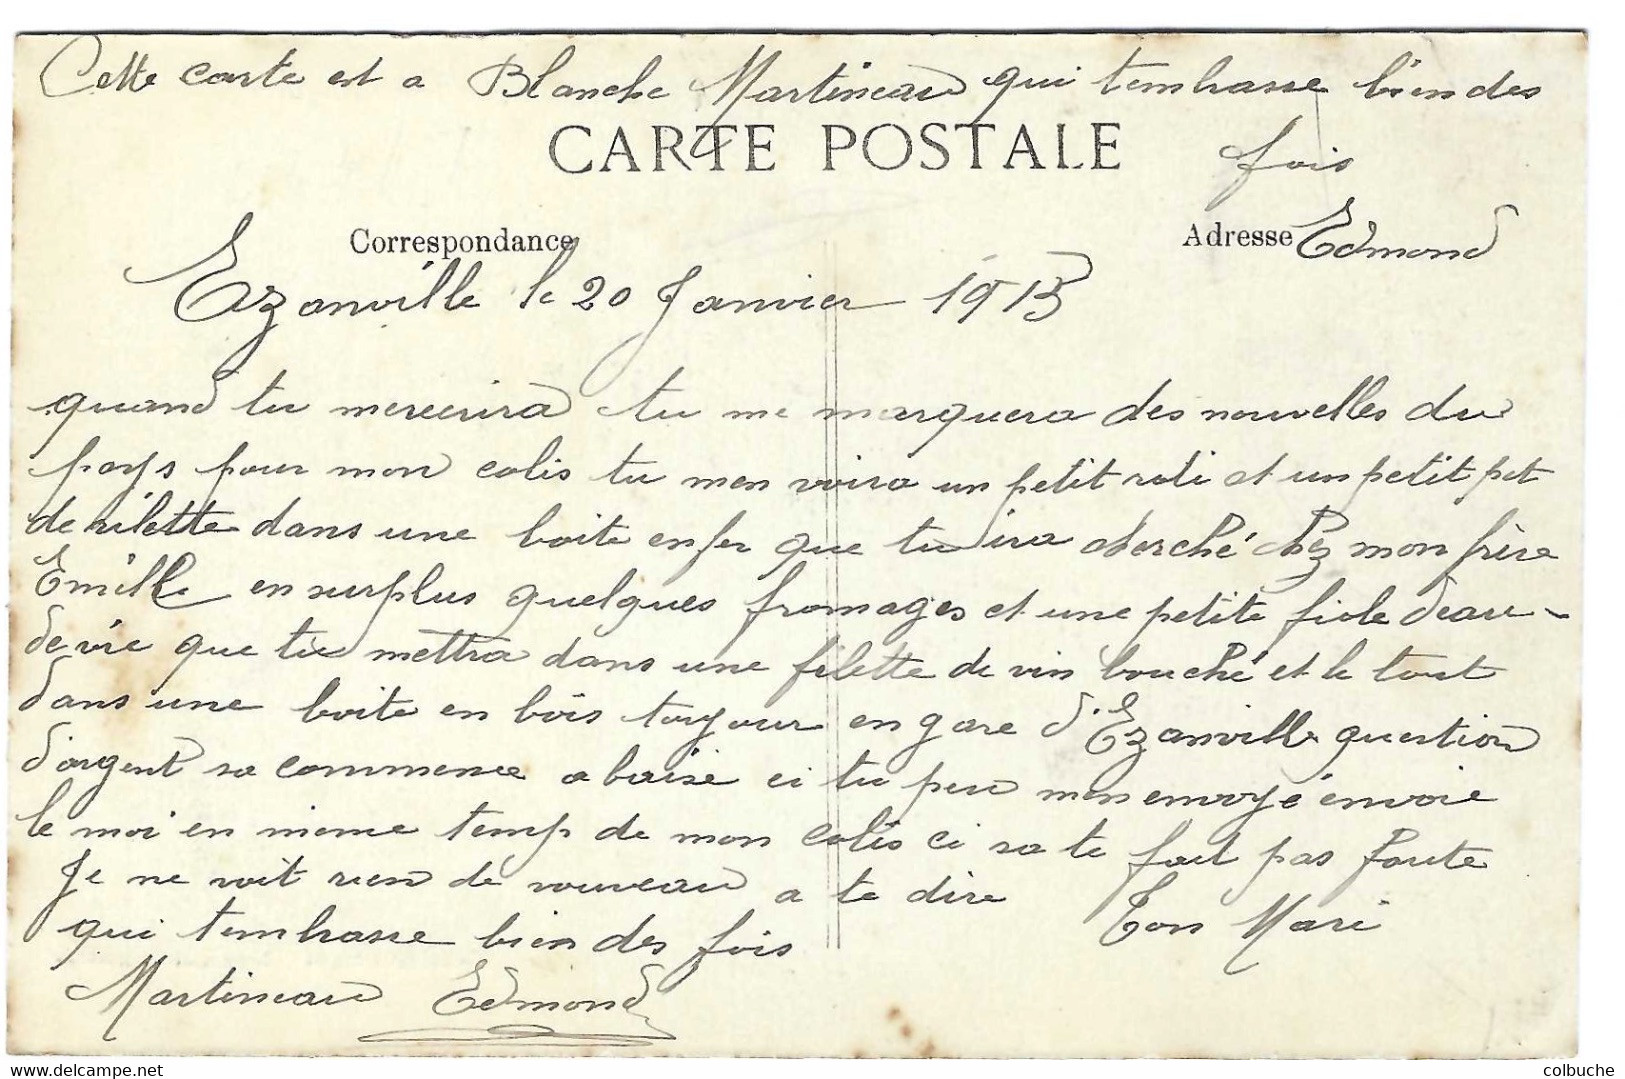 Cette carte est a Blanche Martineau qui tembrasse bien des
fois
CARTE POSTALE
Correspondance
Adresse
Edmond
Ezanville le 20 Janvier 1915
quand tu mereerira tu me marquera des nouvelles du
pays pour mon colis tu men voira un petit roti et un petit pot
de rilette dans une boite en fer que tu ira cherché chez mon frère
Emille en surplus quelques fromages et une petite fiole deau-
de vie que tu mettra dans une filette de vin bouché et le tout
dans une boite en bois toujour en gare d'Ezanville question
d'argent sa commence a baisé ci tu peu men envoyé envoie
le moi en meme temp de mon colis ci sa te fait pas faute
Je ne voit rien de nouveau a te dire Ton Mari
qui tembrasse bien des fois
Martineau Edmond
colbuche